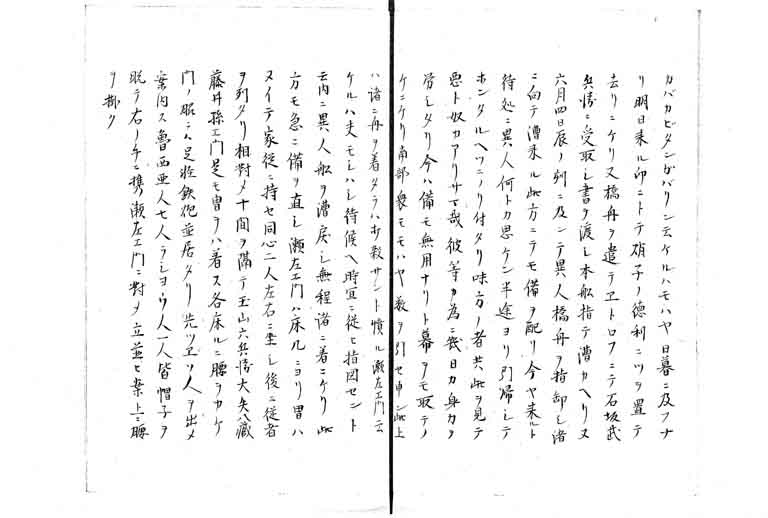 カバカピタンガバリン云ケルハモハヤ日暮ニ及フナ
リ明日来ル印ニトテ硝子ノ徳利ニツヲ置テ
去リニケリ又橋舟ヲ遣テヱトロフニテ石坂武
兵衛ニ受取シ書ヲ渡シ本船指テ漕カヘリヌ
六月四日辰ノ刻ニ及ンテ異人橋舟ヲ指卸シ渚
ニ向テ漕来ル此方ニテモ備ヲ配リ今ヤ来ルト
待処ニ異人何トカ思ケン半途ヨリ引帰シテ
ホンタルヘツニノリ付タリ味方ノ者共此ヲ見テ
悪ト奴カアリサマ哉彼等カ為ニ幾日カ身力ヲ
労シタリ今ハ備モ無用ナリト幕ヲモ取テノ
ケニケリ南部衆モモハヤ数ヲ引セ申ン此上
ハ渚ニ舟ヲ着タラハ打殺サント憤ル瀬左エ門云
ケルハ丈モシハシ待候ヘ時宜ニ従ヒ指図セント
云内ニ異人船ヲ漕戻シ無程渚ニ着ニケリ此
方モ急ニ備ヲ直シ瀬左エ門ハ床几ニヨリ冑ハ
ヌイテ家従ニ持セ同心二人左右ニ坐シ後ニ従者
ヲ列タリ相對メ十間ヲ隔テ玉山六兵衛大矢八蔵
藤井孫エ門足モ冑ヲハ着ス各床ルニ腰ヲカケ
門ノ服ニハ足軽鉄炮並居タリ先ツヱソ人ヲ出メ
案内ス魯西亜人七人ラシヨウ人一人皆帽子ヲ
脱テ右ノ手ニ携瀬左エ門ニ對メ立並ヒ案上ニ腰
ヲ掛ク